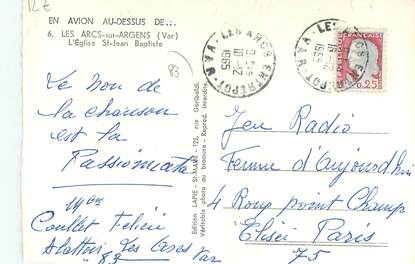 12 €
EN AVION AU-DESSUS DE...
6. LES ARCS-sur-ARGENS (Var)
L'Église St-Jean Baptiste
83
LES ARCS ENTREPOT - VAR
10-12
1965
LES ARCS ENTREPOT - VAR
1965
FRANÇAISE
0,25
Le nom de
la chanson
est la
Passionata
Édition LAPIE - St-MAUR - 125, rue Garibaldi.
Véritable photo au bromure - Reprod. Interdite.
Jeu Radio
Femme d'Aujourd'hui
4 Rond point Champ
Elisée Paris
75
Coullet Félicien
Les Arcs
Var
83